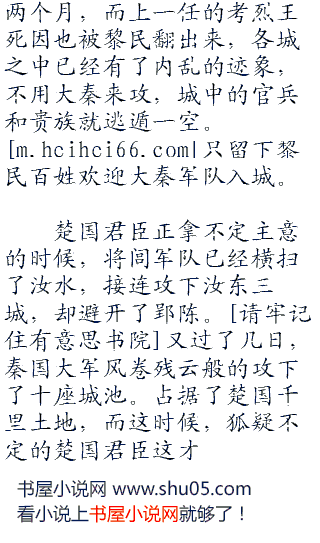 两个月，而上一任的考烈王
死因也被黎民翻出来，各城
之中已经有了内乱的迹象，
不用大秦来攻，城中的官兵
和贵族就逃遁一空。
[m.hcihci66.com]只留下黎
民百姓欢迎大秦军队入城。
楚国君臣正拿不定主意
的时候，将闾军队已经横扫
了汝水，接连攻下汝东三
城，却避开了郢陈。[请牢记
住有意思书院]又过了几日，
秦国大军风卷残云般的攻下
了十座城池。占据了楚国千
里土地，而这时候，狐疑不
定的楚国君臣这才
书屋小说网 www.shu05.com
看小说上书屋小说网就够了！